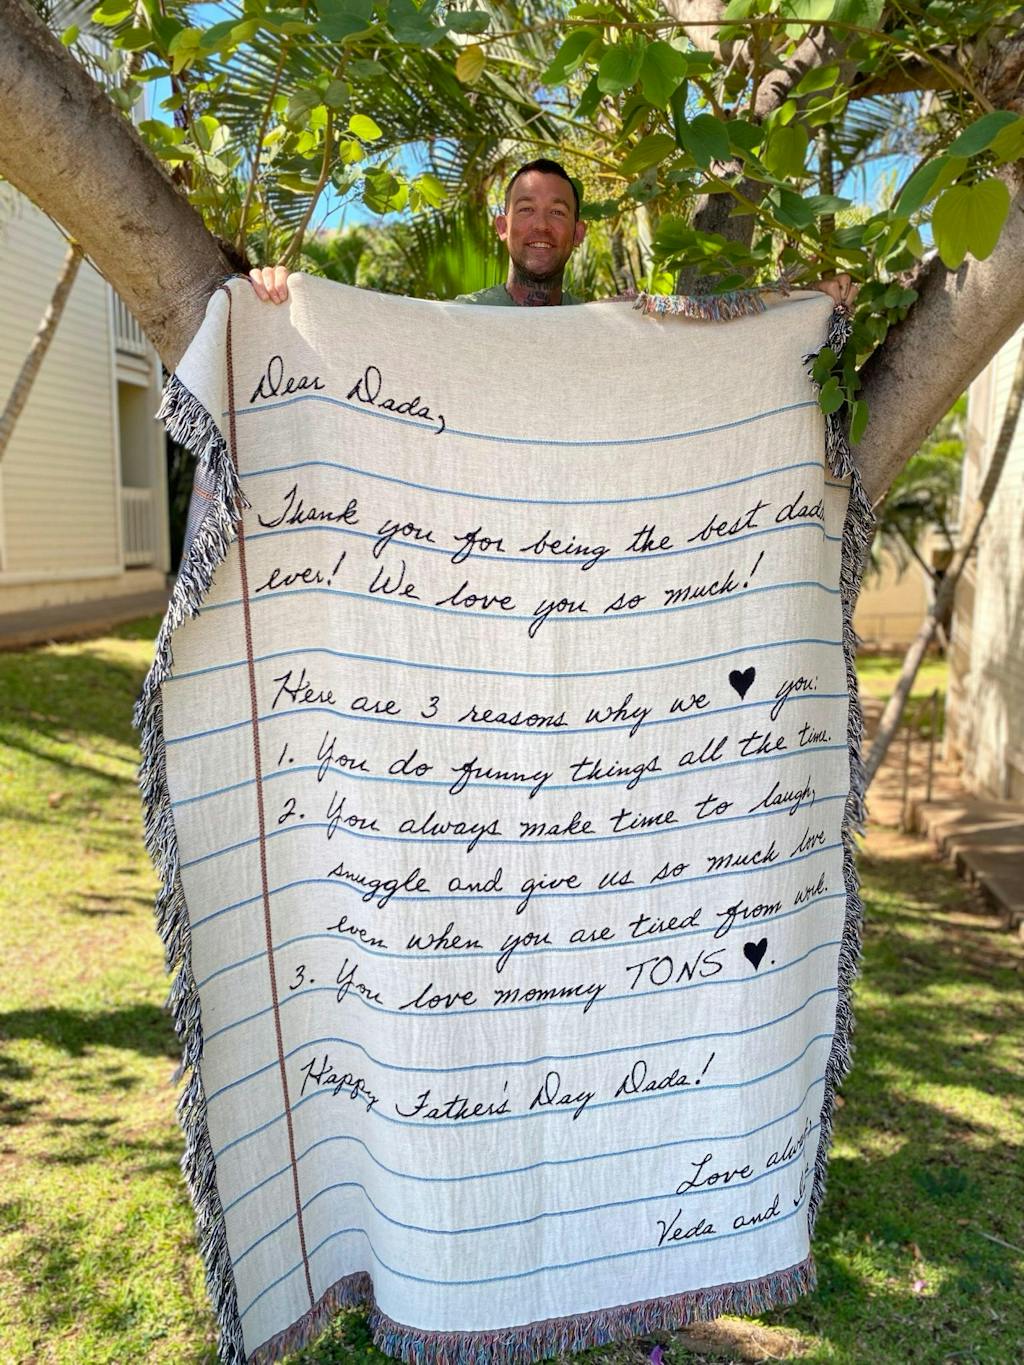 Dear Dada,
Thank you for being the best dada
ever! We love you so much!
Here are 3 reasons why we ♥ you:
1. You do funny things all the time.
2. You always make time to laugh,
snuggle and give us so much love
even when you are tired from work.
3. You love mommy TONS ♥.
Happy Father's Day Dada!
Love always,
Veda and